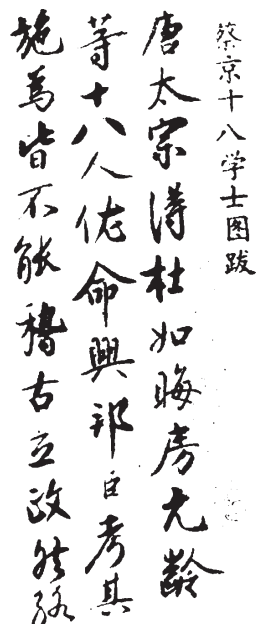 蔡京十八学士图跋
唐太宗得杜如晦房元齡
等十八人佐命興邦臣考其
施爲皆不能稽古立政然終